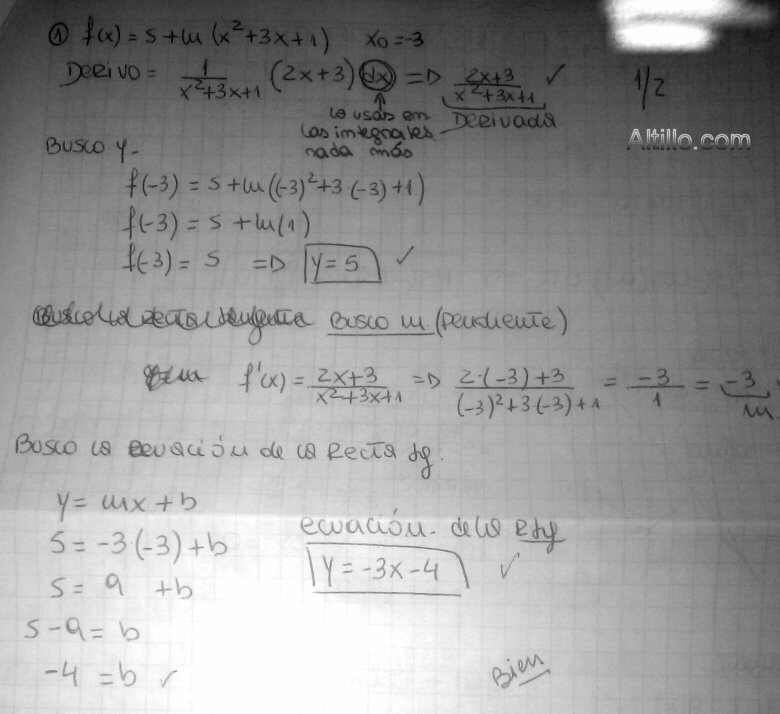 ① f(x) = 5 + ln (x²+3x+1) x₀ = -3
Derivo = 1/(x²+3x+1) (2x+3) dx => (2x+3)/(x²+3x+1) ✓ 1/2
lo usás en las integrales nada más
Derivada
Altillo.com
Busco y.
f(-3) = 5 + ln((-3)²+3(-3)+1)
f(-3) = 5 + ln(1)
f(-3) = 5 => y = 5 ✓
Busco m (pendiente)
f'(x) = (2x+3)/(x²+3x+1) => (2·(-3)+3)/((-3)²+3(-3)+1) = -3/1 = -3
m
Busco la ecuación de la recta tg.
y = mx + b
5 = -3(-3) + b
5 = 9 + b
5 - 9 = b
-4 = b ✓
ecuación de la R tg
y = -3x - 4 ✓
Bien